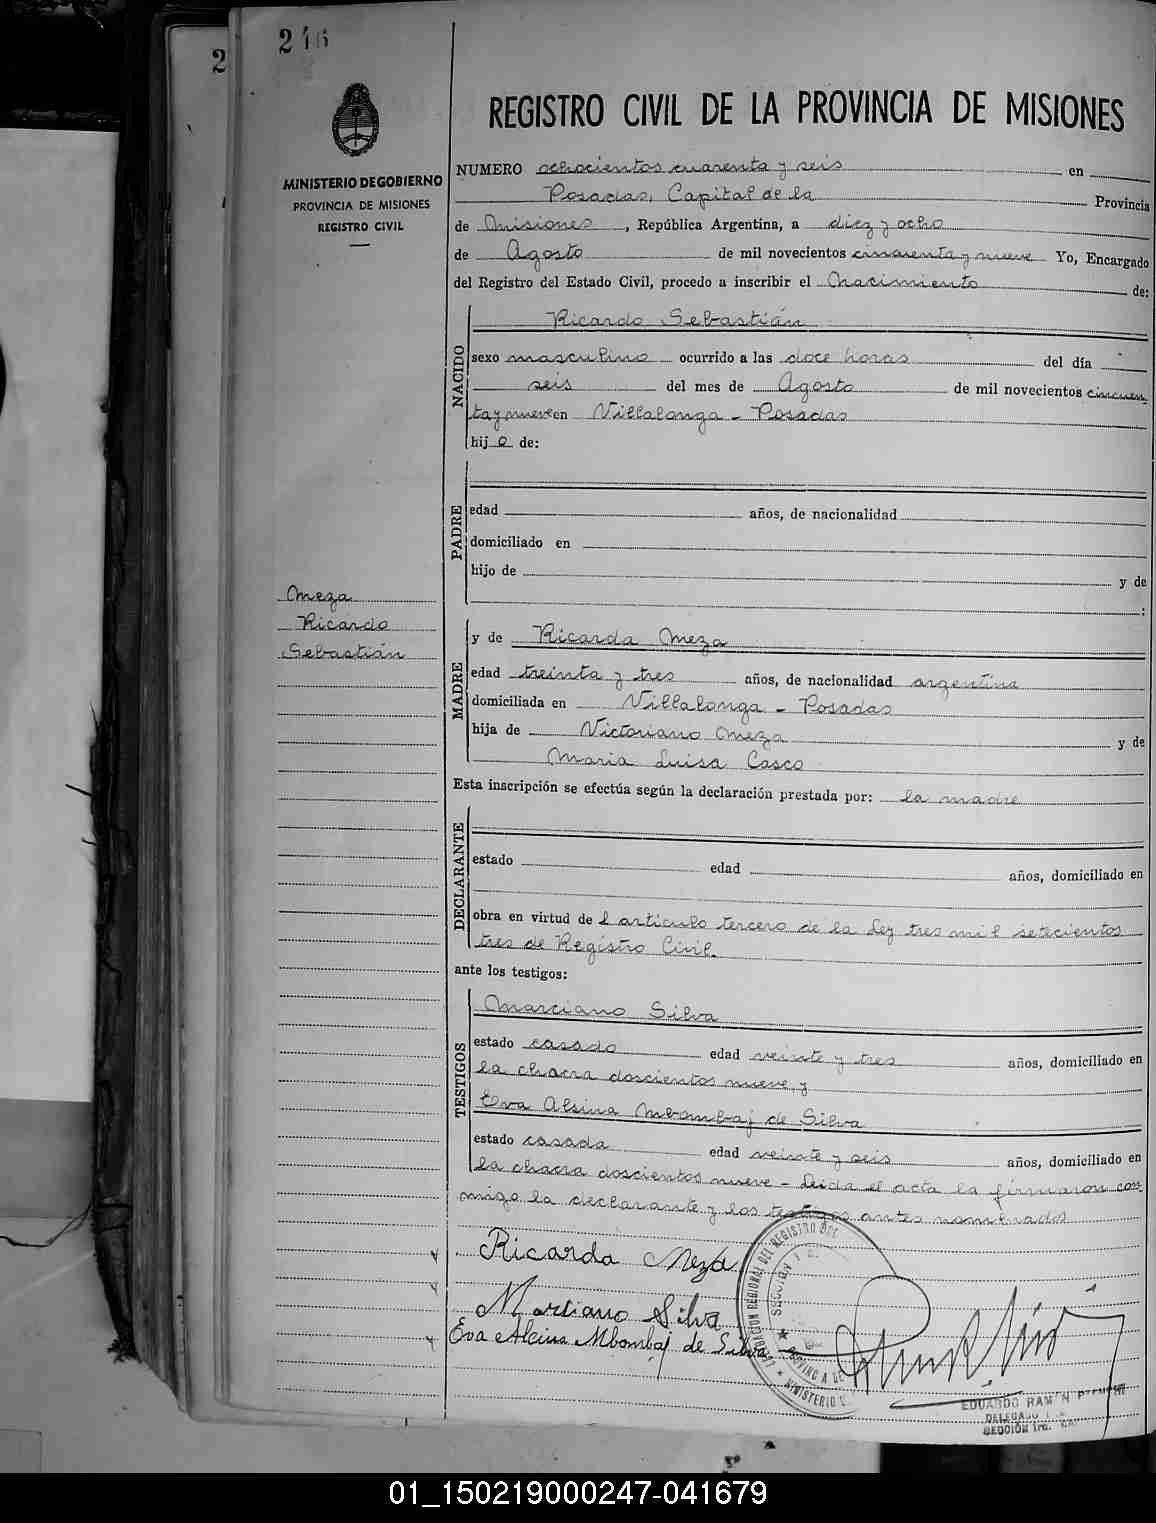 246
2
REGISTRO CIVIL DE LA PROVINCIA DE MISIONES
MINISTERIO DE GOBIERNO
PROVINCIA DE MISIONES
REGISTRO CIVIL
NUMERO ochocientos cuarenta y seis en
Posadas, Capital de la Provincia
de Misiones, República Argentina, a diez y ocho
de Agosto de mil novecientos cincuenta y nueve Yo, Encargado
del Registro del Estado Civil, procedo a inscribir el Nacimiento de:
NACIDO
Ricardo Sebastián
sexo masculino ocurrido a las doce horas del día
seis del mes de Agosto de mil novecientos cincuen
ta y nueve en Villalonga - Posadas
hijo de:
PADRE
edad años, de nacionalidad
domiciliado en
hijo de y de
:
Meza
Ricardo
Sebastián
MADRE
y de Ricarda Meza
edad treinta y tres años, de nacionalidad argentina
domiciliada en Villalonga - Posadas
hija de Victoriano Meza y de
Maria Luisa Casco
Esta inscripción se efectúa según la declaración prestada por: la madre
DECLARANTE
estado edad años, domiciliado en
obra en virtud del articulo tercero de la Ley tres mil setecientos
tres de Registro Civil.
ante los testigos:
TESTIGOS
Marciano Silva
estado casado edad veinte y tres años, domiciliado en
la chacra doscientos nueve y
Eva Alsina Mbombaj de Silva
estado casada edad veinte y seis años, domiciliado en
la chacra doscientos nueve - Leida el acta la firmaron con
migo la declarante y los testigos antes nombrados
Ricarda Meza
Marciano Silva
Eva Alcina Mbombaj de Silva
DELEGACION REGIONAL DEL REGISTRO
SECCION 1
MINISTERIO
EDUARDO RAMON
DELEGADO
SECCIÓN 1ra.
01_150219000247-041679